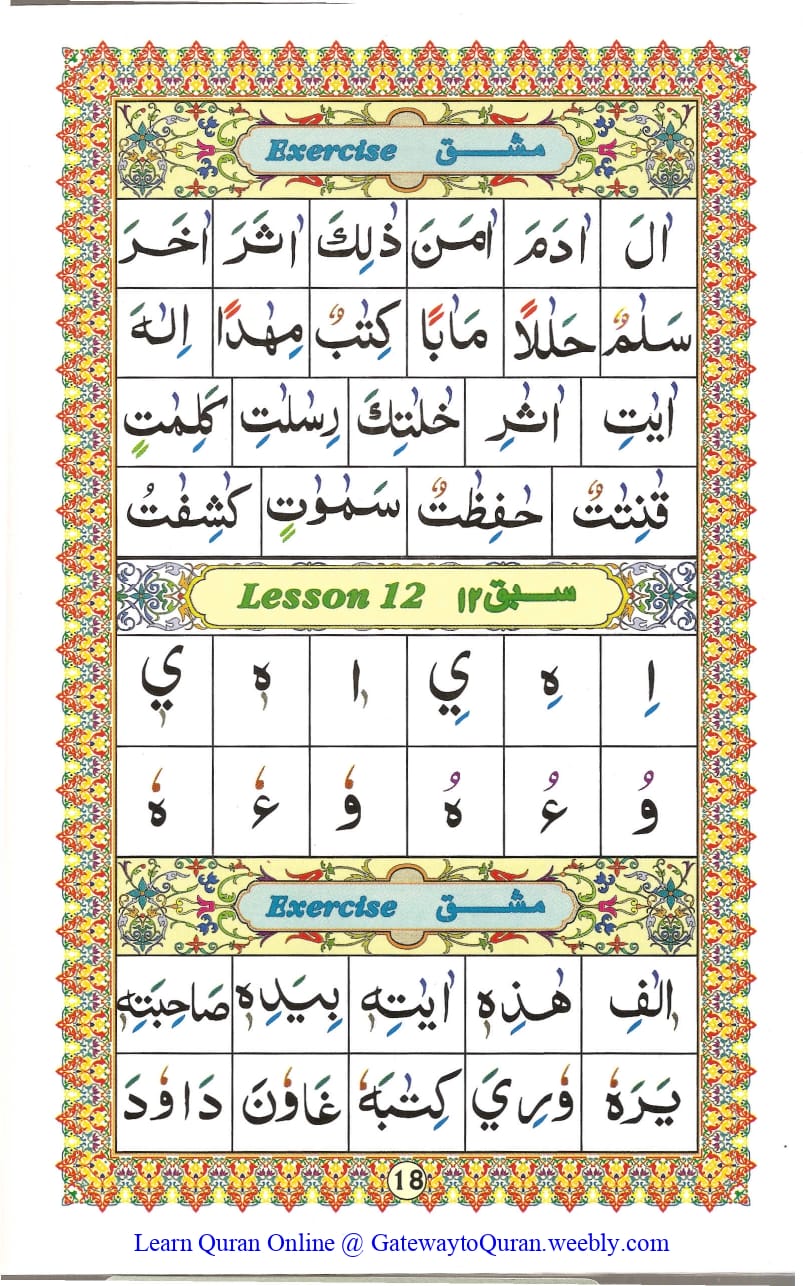 Exercise مشق
اٰلَ اٰدَمَ اٰمَنَ ذٰلِكَ اٰثَرَ اٰخَرَ
سَلٰمٌ حَلٰلًا مَاٰبًا كِتٰبٌ مِهٰدًا اِلٰهَ
اٰيٰتِ اٰثٰرِ خٰلٰتِكَ رِسٰلٰتِ كَلِمٰتٍ
قٰنِتٰتٌ حٰفِظٰتٌ سَمٰوٰتٍ كٰشِفٰتُ
Lesson 12 سبق ١٢
اِ هِ يِ اٖ هٖ يٖ
وُ ءُ هُ وٗ ءٗ هٗ
Exercise مشق
اٖلٰفِ هٰذِهٖ اٰيٰتِهٖ بِيَدِهٖ صَاحِبَتِهٖ
يَرَهٗ وٗرِيَ كِتٰبَهٗ غَاوٗنَ دَاوٗدَ
18
Learn Quran Online @ GatewaytoQuran.weebly.com